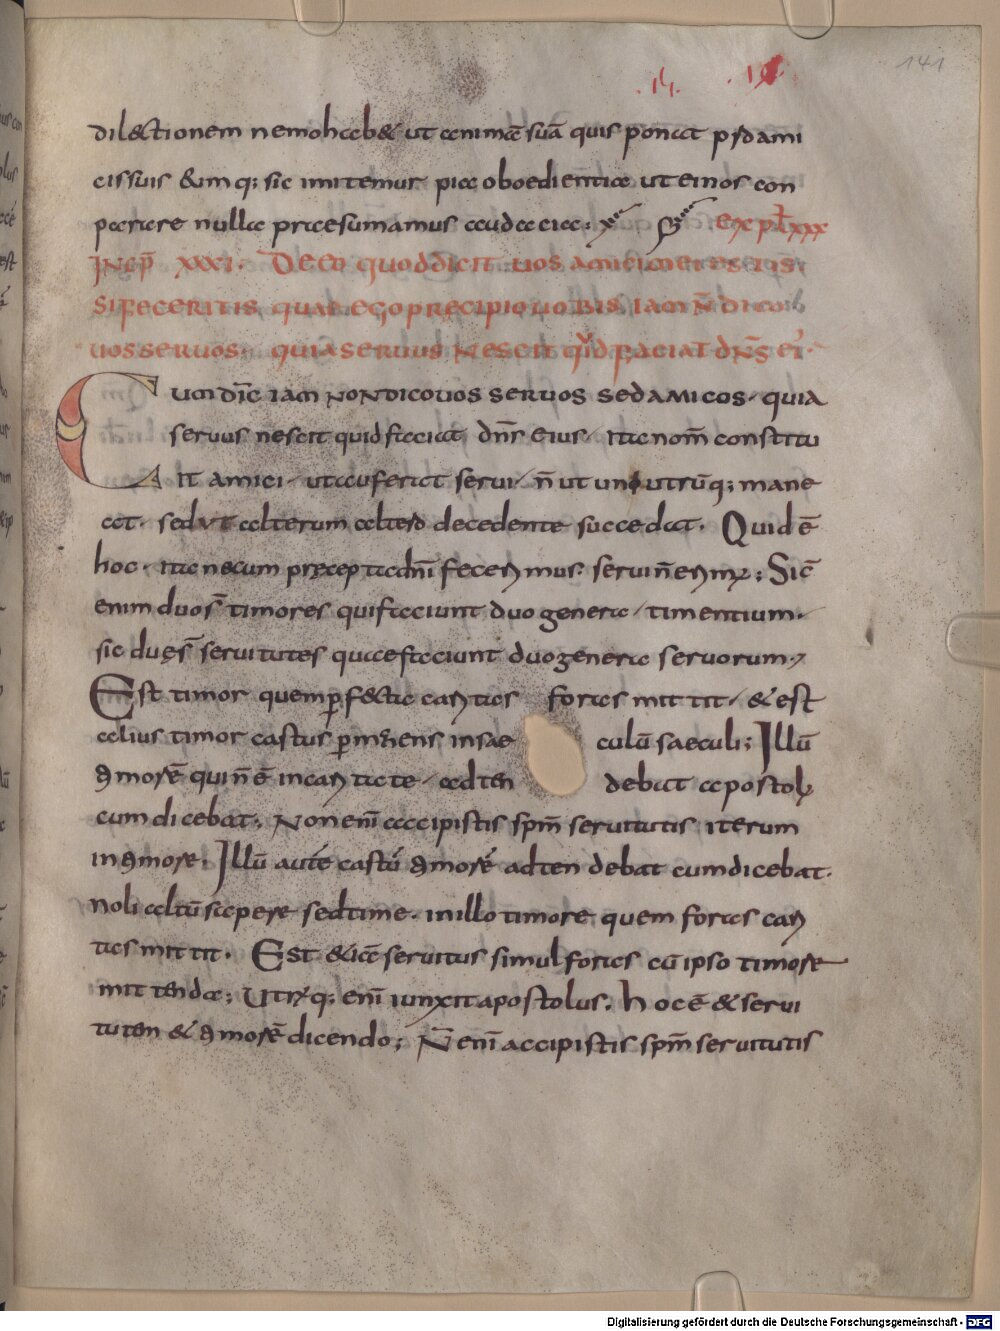 141
dilectionem nemo habet ut animā suā quis ponat p̄ſd ami
cis suis & imq; sic imitemur pia oboedientia ut ei nos con
parare nulla praesumamus audacia: expl̄ xxx
INCIP̄ XXXI. DE EO QUOD DICIT UOS AMICI MEI ESTIS.
SI FECERITIS QUAE EGO PRĘCIPIO UOBIS. IAM N̄ DICO
UOS SERUOS. QUIA SERUUS NESCIT QUID FACIAT DN̄S EI'.
Cum dic̄ iam non dico uos seruos sed amicos. quia
seruus nescit quid faciat dn̄s eius. ita nom̄ constitu
it amici. ut auferat serui. n̄ ut uno utrūq; mane
at. sed ut alterum altero decedente succedat. Quid ē
hoc. ita ne cum pręcepta dn̄i fecerimus. serui n̄ erim'; Sic̄
enim duos̄ timores qui faciunt duo genera timentium.
sic duęs̄ seruitutes quae faciunt duo genera seruorum.
Est timor quem perfecta caritas foras mittit. & est
alius timor castus permanens in sae culū saeculi; Illū
timorē qui n̄ ē in caritate. adten debat apostolus
cum dicebat. Non enī accipistis spm̄ seruitutis iterum
in timore. Illū autē castū timorē adtendebat cum dicebat.
noli altū sapere sed time. in illo timore quem foras cari
tas mittit. Est & iā seruitus simul foras cū ipso timore
mittenda; Utrūq; enī iunxit apostolus. hoc ē & serui
tutem & timorē dicendo; N̄ enī accipistis spm̄ seruitutis
Digitalisierung gefördert durch die Deutsche Forschungsgemeinschaft - DFG